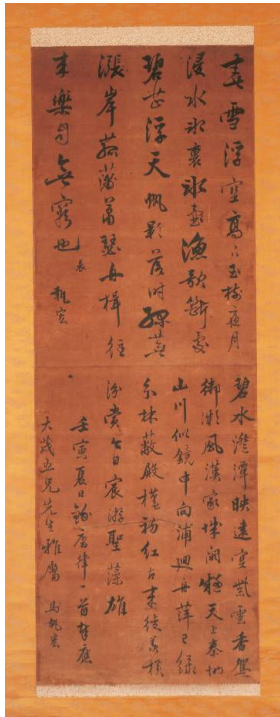 春雪浮空高〻玉樹夜月
浸水水裏冰壺漁歌斷處
碧芷浮天帆影落時綠蕪
漲岸菰蒲蕭瑟舟楫往
來樂可無窮也
碧水澄潭映遠空紫雲香駕
御微風漢家城闕疑天上秦地
山川似鏡中向浦迴舟萍已綠
分林蔽殿槿初紅古來徒羨橫
汾賞今日宸游聖藻雄
壬寅夏日錄唐律一首奉應
大茂五兄先生雅屬